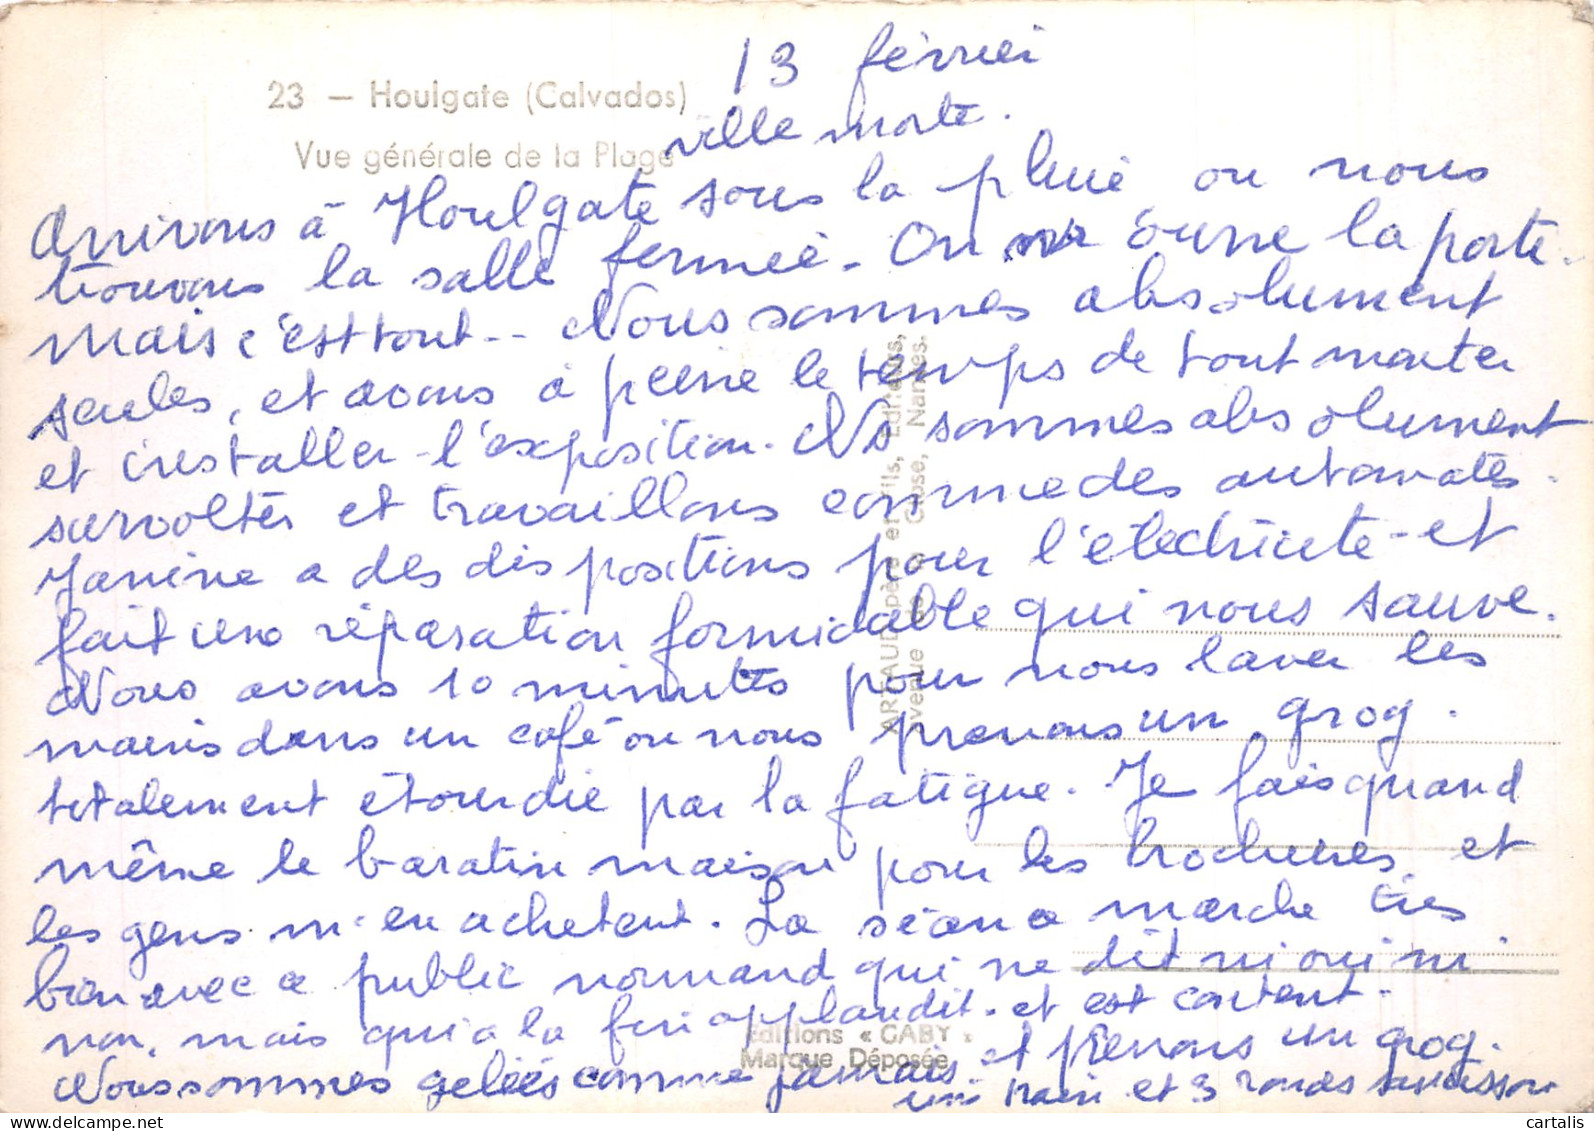 13 février
23 — Houlgate (Calvados)
ville morte.
Vue générale de la Plage
Arrivons à Houlgate sous la pluie ou nous
trouvons la salle fermée. On ouvre la porte.
mais c'est tout.. Nous sommes absolument
seules, et avons à peine le temps de tout monter
et installer l'exposition. Ns sommes absolument
survoltés et travaillons comme des automates.
Janine a des dispositions pour l'électricité et
fait une réparation formidable qui nous sauve.
Nous avons 10 minutes pour nous laver les
mains dans un café ou nous prenons un grog.
totalement étourdie par la fatigue. Je fais quand
même le baratin maison pour les brochures et
les gens m'en achetent. La séance marche très
bien avec ce public normand qui ne dit ni oui ni
non, mais qui a la fin applaudit. et est content.
Nous sommes gelées comme jamais et prenons un grog.
un train et 3 ronds saucisson
ARTAUD père et Fils, Editeurs,
avenue de la Close, Nantes.
Editions « GABY »
Marque Déposée
cartalis